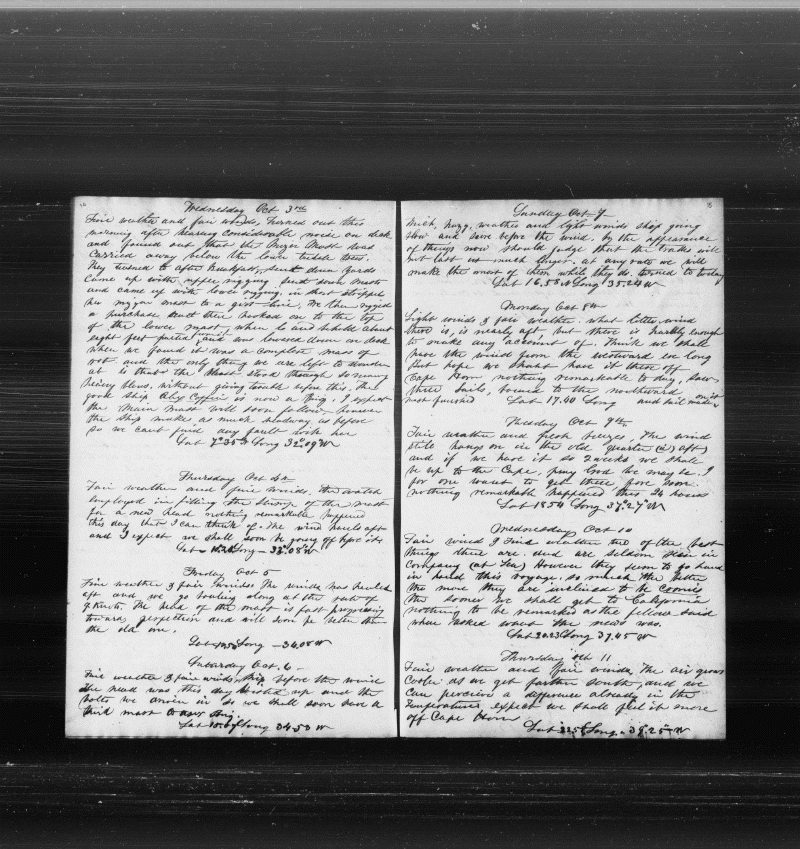 Wednesday Oct 3rd
Fair weather and fair winds, Turned out this
morning after hearing considerable noise on deck
and found out that the Mizen Mast was
carried away below the lower trestle trees.
They turned to after breakfast, sent down yards
came up with upper rigging, sent down masts
and came up with lower rigging, in short stripped
her mizen mast to a girt line, We then rigged
a purchase and then hooked on to the top
of the lower mast when lo and behold about
eight feet parted and was lowered down on deck
when we found it was a complete mass of
rot and the only thing we are left to wonder
at is that the Mast stood through so many
heavy blows, without giving trouble before this. The
good ship Alex Coffin is now a Brig, I expect
the Main Mast will soon follow however
the Ship makes as much headway as before
so we cant find any fault with her
Lat 7°.35 Long 32°.09 W
Thursday Oct 4th
Fair weather and fair winds, the watch
employed in fitting the stump of the mast
for a new head nothing remarkable happened
this day that I can think of. The wind hauls aft
and I expect we shall soon be going off before it
Long - 33°.08 W
Friday Oct 5
Fine weather & fair winds. The wind has hauled
aft and we go bowling along at the rate of
9 Knots. The head of the mast is fast progressing
towards perfection and will soon be better than
the old one.
Long - 34.08 W
Saturday Oct. 6
Fair weather & fair winds, ship before the wind
The head was this day hoisted up and the
bolts we driven in so we shall soon have a
third mast to our Brig.
Long 34.50 W
Sunday Oct 7
Thick, hazy, weather and light winds ship going
slow and sure before the wind, by the appearance
of things now should judge that the trades will
not last us much longer, at any rate we will
make the most of them while they do, turned to today
Lat 16.58 Long 35.24 W
Monday Oct 8th
Light winds & fair weather. what little wind
there is, is nearly aft, but there is hardly enough
to make any account of. Think we shall
have the wind from the westward ere long
But hope we shant have it there off
Cape Horn nothing remarkable to day, saw
three sails, bound to the northward
mast finished Lat 17.40 Long and sail made on it
Tuesday Oct 9th
Fair weather and fresh breezes, The wind
still hangs on in the old quarter (ie) aft)
and if we have it so 2 weeks we shall
be up to the Cape, pray God we may be. I
for one want to get there fore soon
nothing remarkable happened this 24 hours
Lat 18.54 Long 37.27 W
Wednesday Oct 10
Fair wind & Fair weather two of the best
things there are. and are seldom seen in
company (at Sea) However they seem to go hand
in hand this voyage, so much the better
the more they are inclined to be Cronies
the sooner we shall get to California
nothing to be remarked as the fellow said
when asked what the news was.
Lat 20.23 Long 37.45 W
Thursday Oct 11
Fair weather and fair winds, The air grows
cooler as we get farther south, and we
can perceive a difference already in the
temperature, expect we shall feel it more
off Cape Horn
Long - 38.25 W